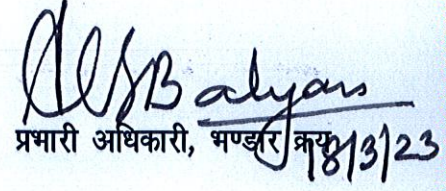 Balyan
प्रभारी अधिकारी, भण्डार क्रय
18/3/23